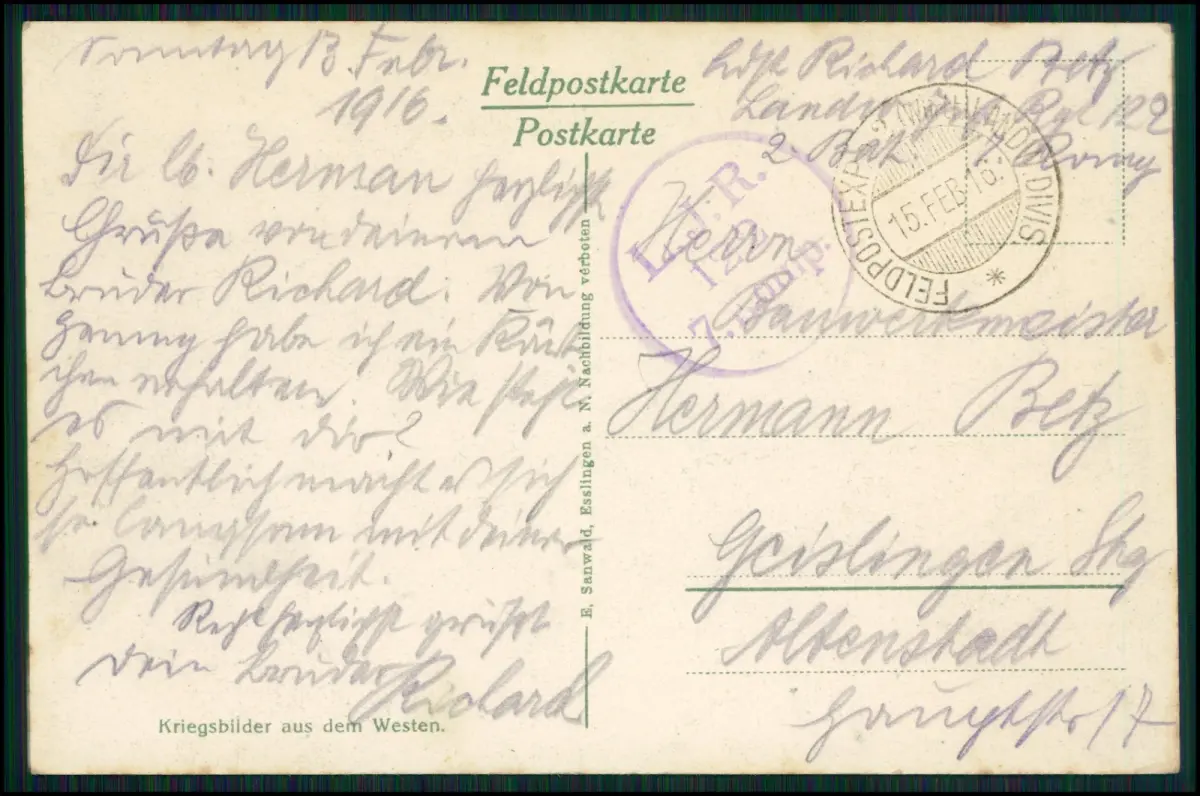 Sonntag 13. Febr.
1916.
Dir lb. Herman herzlichste
Grüße von deinem
Bruder Richard. Von
habe ich ein Päck-
chen erhalten. Wie steht
es mit dir?
Hoffentlich macht es sich
so langsam mit deiner
Gesundheit.
Recht herzlichst grüßt
Dein Bruder Richard
Kriegsbilder aus dem Westen.
Feldpostkarte
Postkarte
E. Sanwald, Esslingen a. N. Nachbildung verboten
Ldst Richard Betz
Landw. Inf. Rgt 122
2. Bat. 7. Komp
L.J.R.
122
7. Komp.
FELDPOSTEXP. LANDW. DIVIS.
15.FEB.16.
Herrn
Bauwerkmeister
Hermann Betz
Geislingen Stg
Altenstadt
Hauptstr 17